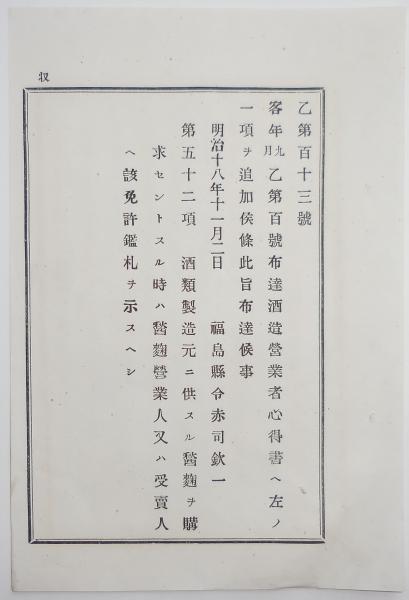 収
乙第百十三號
客年九月乙第百號布達酒造營業者心得書ヘ左ノ
一項ヲ追加候條此旨布達候事
明治十八年十一月二日 福島縣令赤司欽一
第五十二項 酒類製造元ニ供スル醫麴ヲ購
求セントスル時ハ醫麴營業人又ハ受賣人
ヘ該免許鑑札ヲ示スヘシ